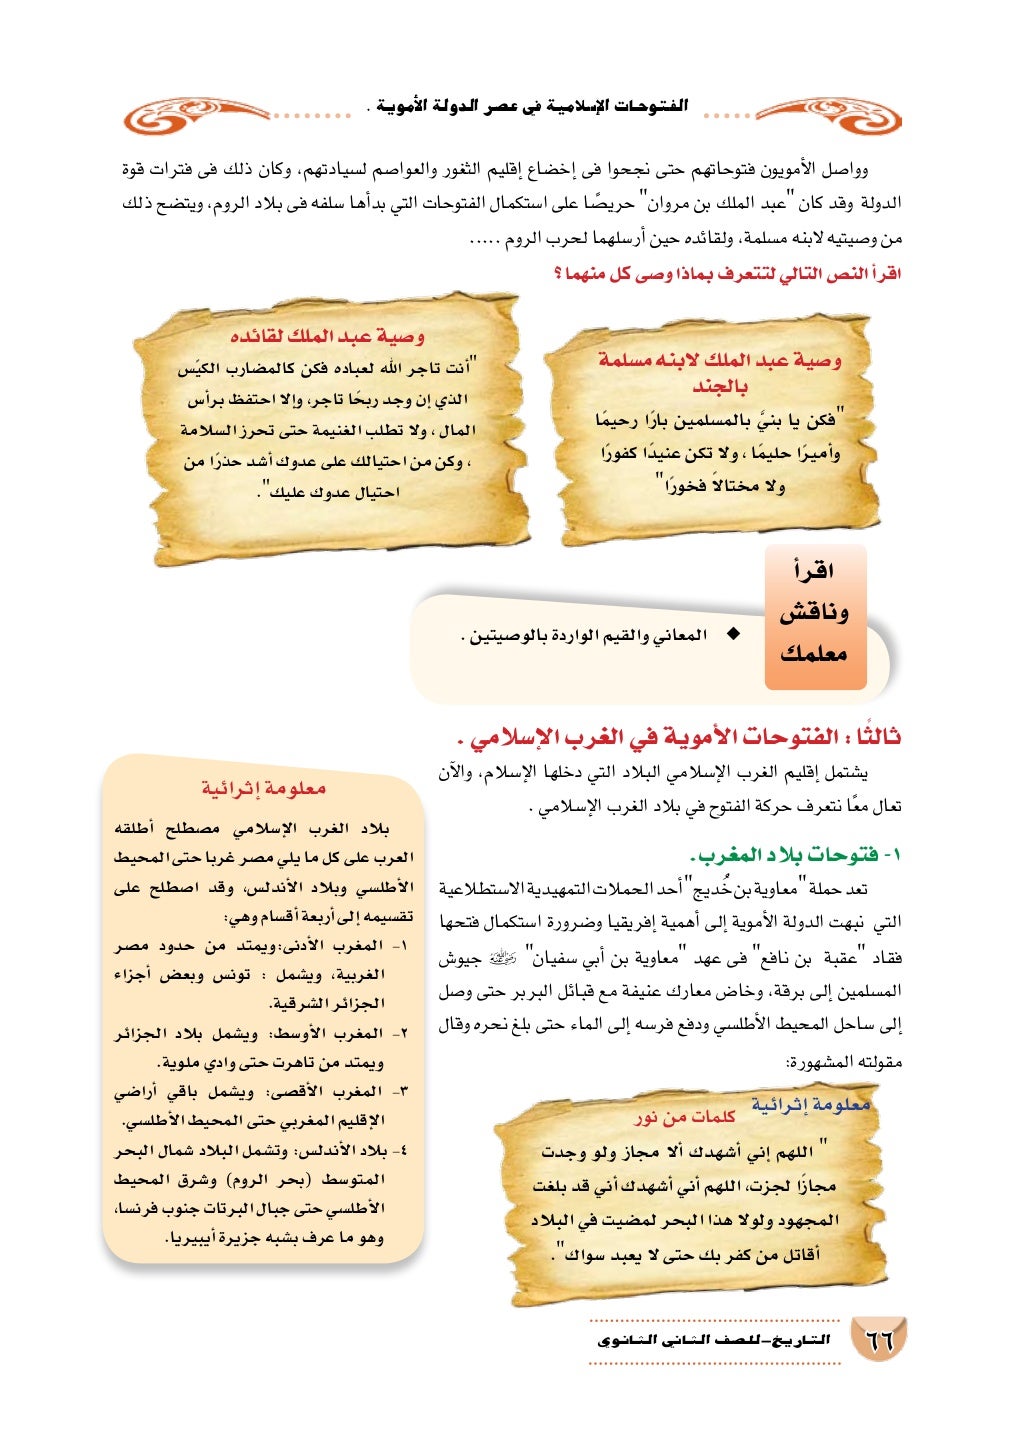 الفتوحات الإسلامية في عصر الدولة الأموية .
وواصل الأمويون فتوحاتهم حتى نجحوا فى إخضاع إقليم الثغور والعواصم لسيادتهم، وكان ذلك فى فترات قوة
الدولة وقد كان "عبد الملك بن مروان" حريصًا على استكمال الفتوحات التي بدأها سلفه فى بلاد الروم، ويتضح ذلك
من وصيتيه لابنه مسلمة، ولقائده حين أرسلهما لحرب الروم .....
اقرأ النص التالي لتتعرف بماذا وصى كل منهما ؟
وصية عبد الملك لابنه مسلمة
بالجند
"فكن يا بنيَّ بالمسلمين بارًا رحيمًا
وأميرًا حليمًا ، ولا تكن عنيدًا كفورًا
ولا مختالاً فخورًا"
وصية عبد الملك لقائده
"أنت تاجر الله لعباده فكن كالمضارب الكيّس
الذي إن وجد ربحًا تاجر، وإلا احتفظ برأس
المال ، ولا تطلب الغنيمة حتى تحرز السلامة
، وكن من احتيالك على عدوك أشد حذرًا من
احتيال عدوك عليك".
اقرأ
وناقش
معلمك
◆ المعاني والقيم الواردة بالوصيتين .
ثالثًا : الفتوحات الأموية في الغرب الإسلامي .
يشتمل إقليم الغرب الإسلامي البلاد التي دخلها الإسلام، والآن
تعال معًا نتعرف حركة الفتوح في بلاد الغرب الإسلامي .
١- فتوحات بلاد المغرب.
تعد حملة "معاوية بن خُديج" أحد الحملات التمهيدية الاستطلاعية
التي نبهت الدولة الأموية إلى أهمية إفريقيا وضرورة استكمال فتحها
فقاد "عقبة بن نافع" فى عهد "معاوية بن أبي سفيان" رضي الله عنه جيوش
المسلمين إلى برقة، وخاض معارك عنيفة مع قبائل البربر حتى وصل
إلى ساحل المحيط الأطلسي ودفع فرسه إلى الماء حتى بلغ نحره وقال
مقولته المشهورة:
معلومة إثرائية
كلمات من نور
" اللهم إني أشهدك ألا مجاز ولو وجدت
مجازًا لجزت، اللهم أني أشهدك أني قد بلغت
المجهود ولولا هذا البحر لمضيت في البلاد
أقاتل من كفر بك حتى لا يعبد سواك".
معلومة إثرائية
بلاد الغرب الإسلامي مصطلح أطلقه
العرب على كل ما يلي مصر غربا حتى المحيط
الأطلسي وبلاد الأندلس، وقد اصطلح على
تقسيمه إلى أربعة أقسام وهي:
١- المغرب الأدنى:ويمتد من حدود مصر
الغربية، ويشمل : تونس وبعض أجزاء
الجزائر الشرقية.
٢- المغرب الأوسط: ويشمل بلاد الجزائر
ويمتد من تاهرت حتى وادي ملوية.
٣- المغرب الأقصى: ويشمل باقي أراضي
الإقليم المغربي حتى المحيط الأطلسي.
٤- بلاد الأندلس: وتشمل البلاد شمال البحر
المتوسط (بحر الروم) وشرق المحيط
الأطلسي حتى جبال البرتات جنوب فرنسا،
وهو ما عرف بشبه جزيرة أيبيريا.
التاريخ-للصف الثاني الثانوي
٦٦